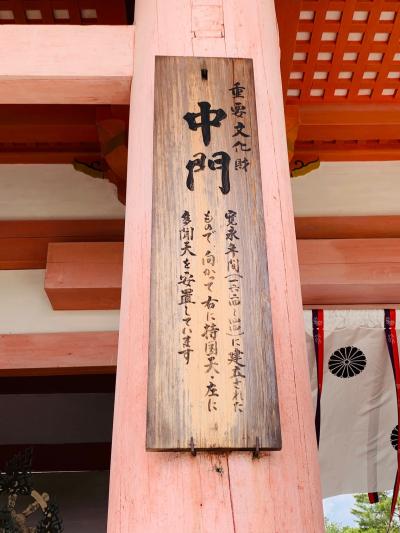 重要文化財
中門
寛永年間(一六二四〜四四)に建立された
もので、向かって右に持国天・左に
多聞天を安置しています